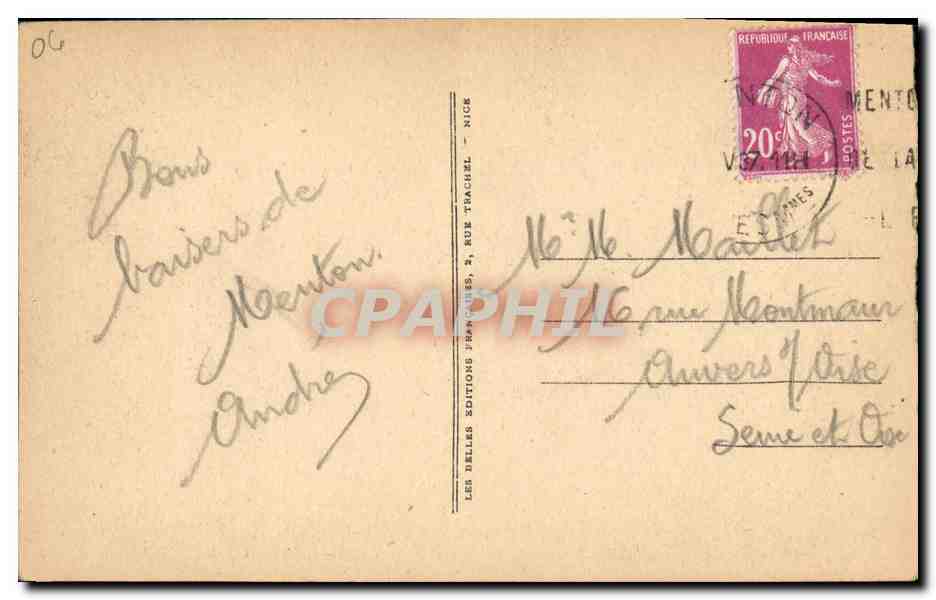 06
Bons
baisers de
Menton.
André
LES BELLES EDITIONS FRANÇAISES, 2, RUE TRACHEL - NICE
REPUBLIQUE FRANÇAISE
20c
POSTES
MENTO
DE LA
M. Maillet
rue Montmaur
Auvers s/ Oise
Seine et Oise
CPAPHIL